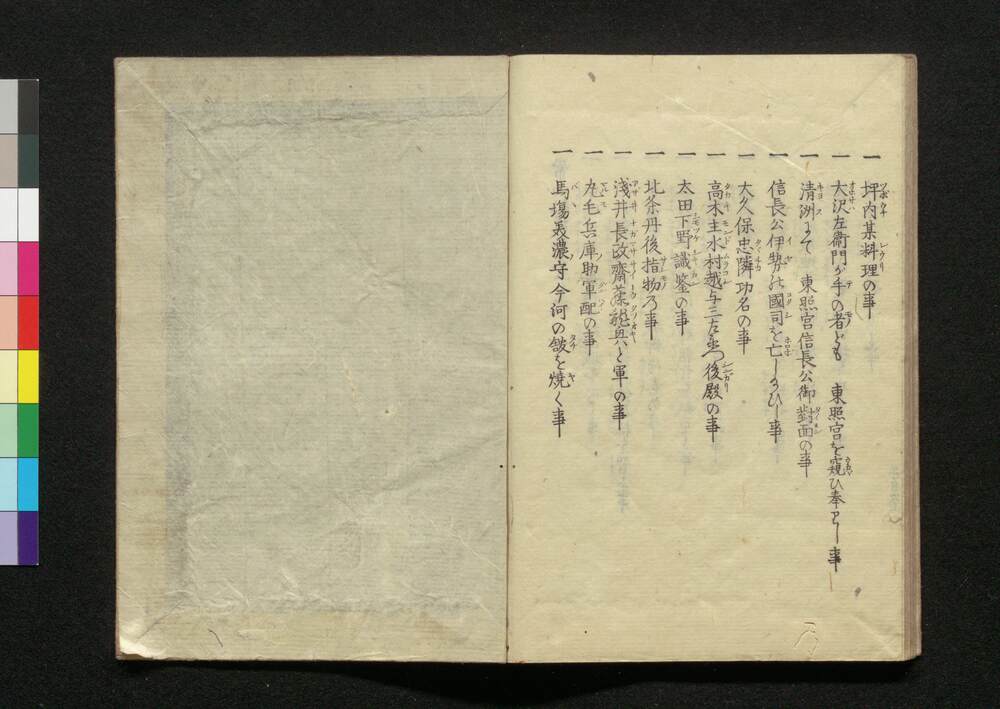 一 坪内某料理の事
一 大沢左衛門が手の者ども 東照宮を窺ひ奉りし事
一 清洲にて 東照宮信長公御對面の事
一 信長公伊勢の國司を亡し給ひし事
一 大久保忠隣功名の事
一 高木主水村越与三左衛門後殿の事
一 太田下野識鑒の事
一 北条丹後指物乃事
一 浅井長政齋藤龍興と軍の事
一 丸毛兵庫助軍配の事
一 馬塲美濃守今河の舘を焼く事